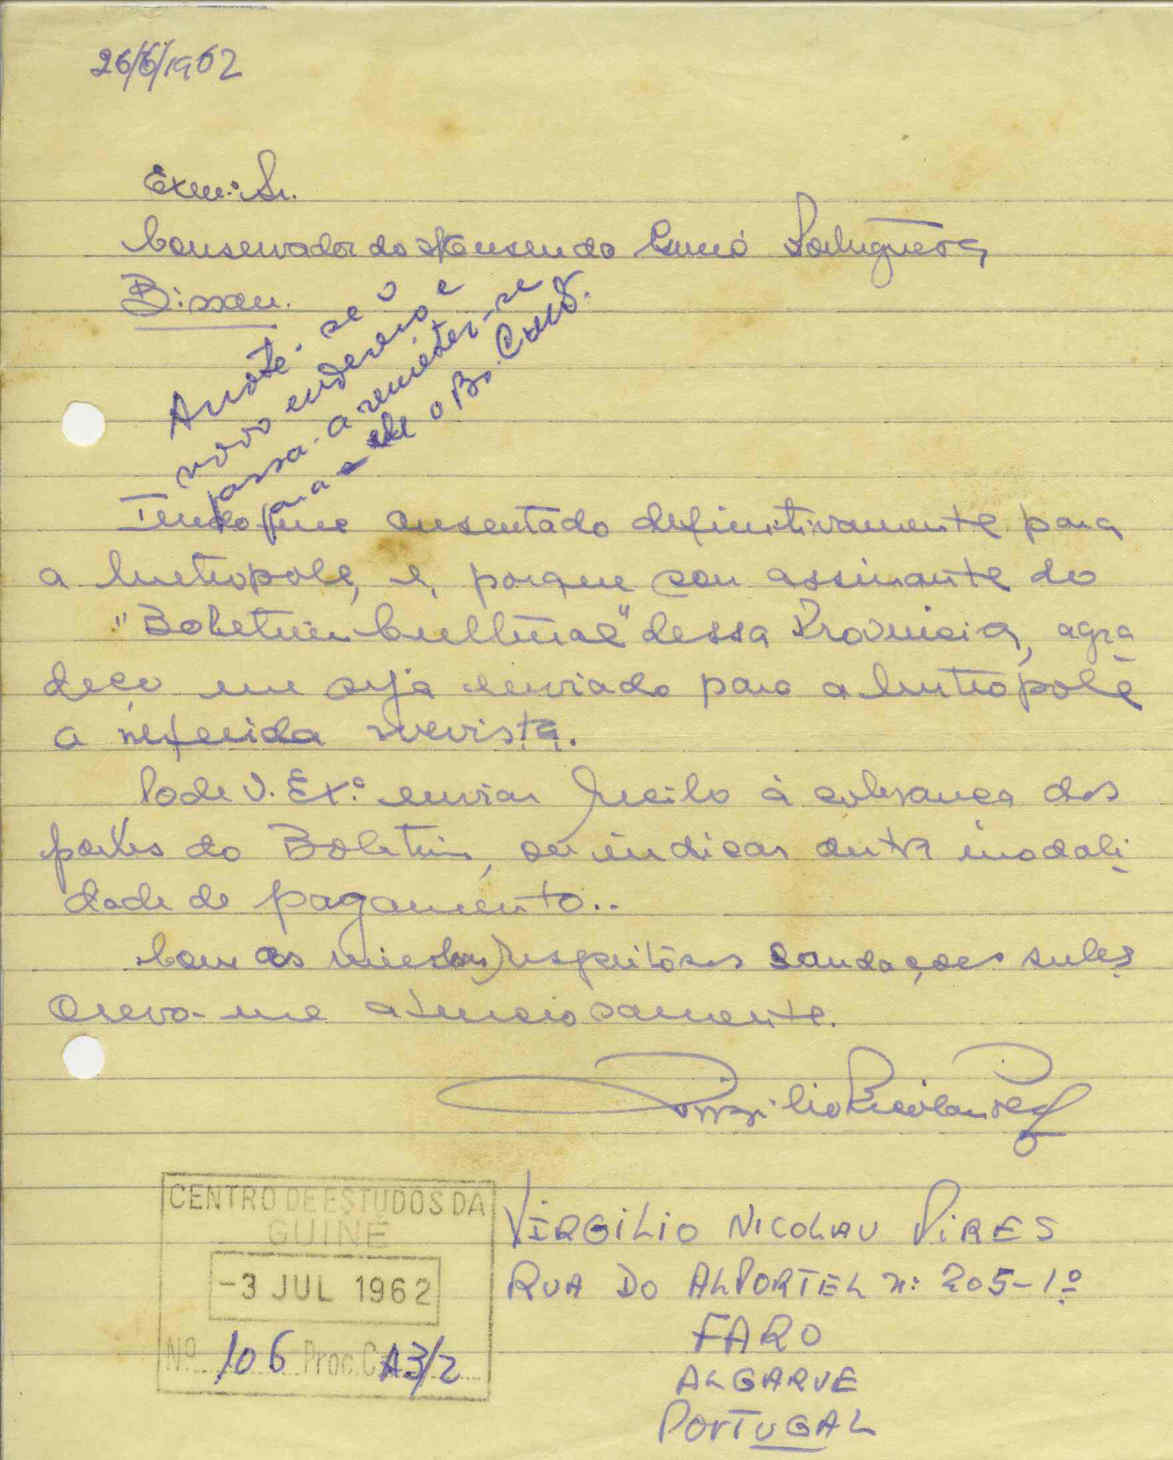 26/6/1962
Exmº. Sr.
Conservador do Museu da Guiné Portuguesa
Bissau.
Anote-se o
novo endereço e
passa-a remeter-se
para ele o Bo. Cult.
Tendo-me ausentado definitivamente para
a Metropole, e, porque sou assinante do
"Boletim Cultural" dessa Provincia, agra
deço me seja enviado para a Metropole
a referida revista.
Pode V. Exª. enviar recibo à cobrança dos
portes do Boletim, ou indicar outra modali
dade de pagamento..
Com as respeitosas saudações subs
crevo-me atenciosamente.
Virgilio Nicolau Pires
CENTRO DE ESTUDOS DA
GUINÉ
-3 JUL 1962
Nº 106 Proc. C A3/2
VIRGILIO NICOLAU PIRES
RUA DO ALPORTEL nº 205-1º
FARO
ALGARVE
PORTUGAL